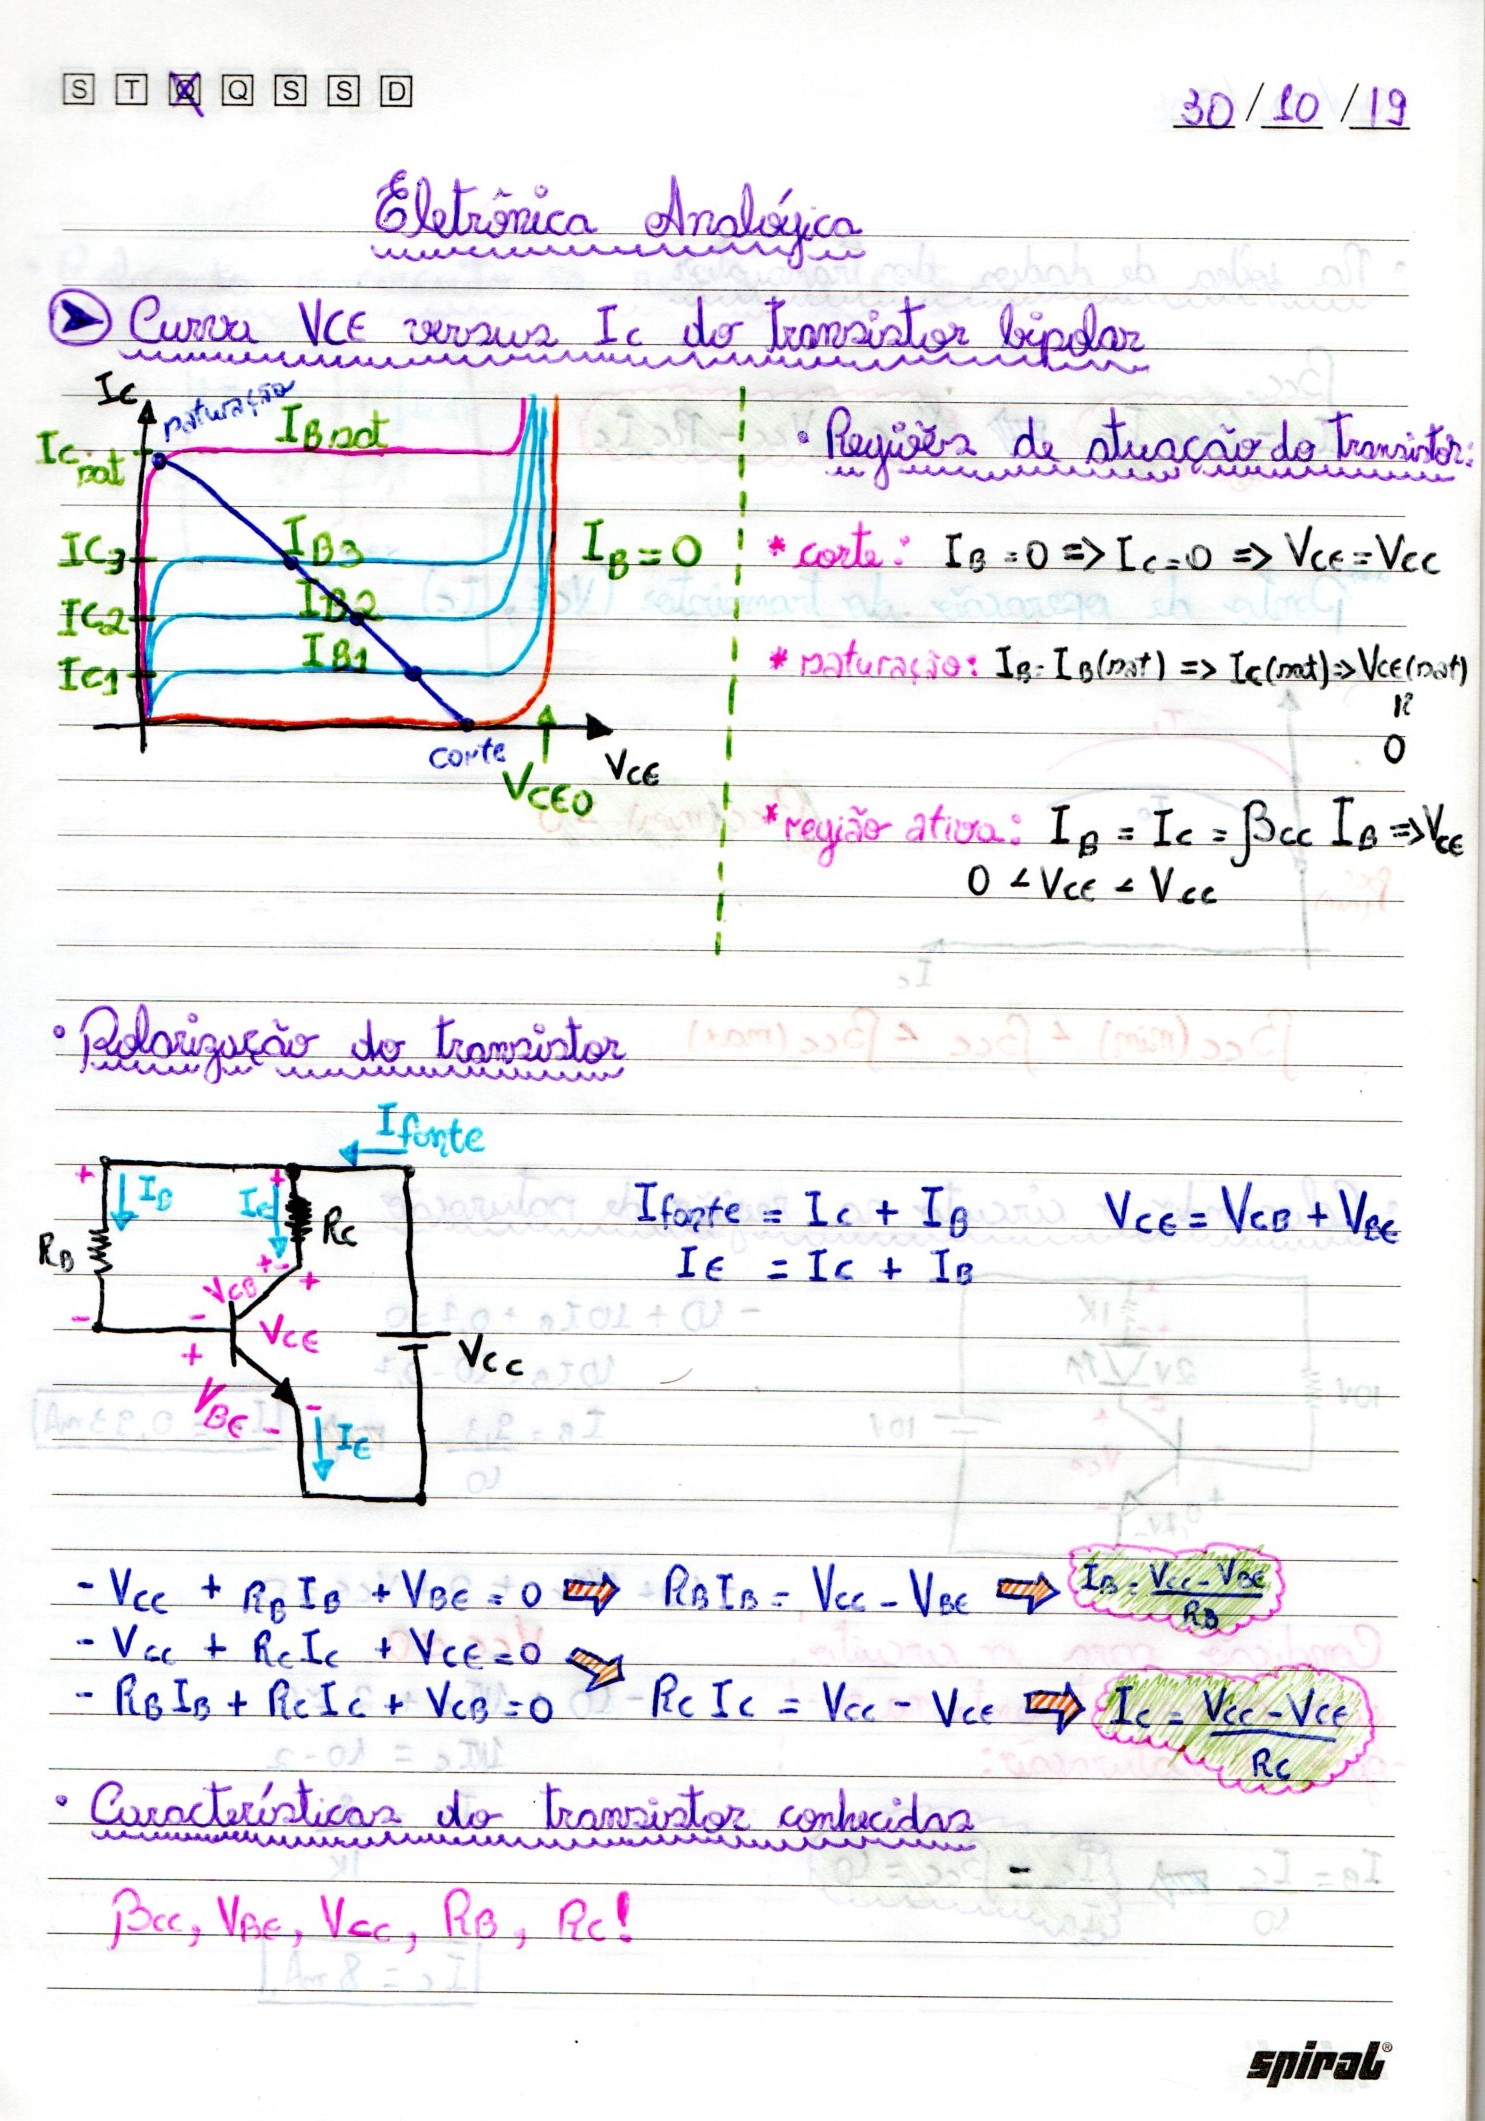 S T Q Q S S D
30/10/19
Eletrônica Analógica
Curva VCE versus Ic do transistor bipolar
Ic
saturação
IBsat
Icsat
IC3
IB3
IB=0
IC2
IB2
IC1
IB1
corte
VCE
VCEO
• Regiões de atuação do transistor:
* corte: IB=0 => Ic=0 => VCE=VCC
* saturação: IB=IB(sat) => Ic(sat)=>VCE(sat)
0
* região ativa: IB = Ic = βcc IB => VCE
0 < VCE < Vcc
• Polarização do transistor
Ifonte
+ IB Ic +
RB Rc
VCB + - +
- - VCE
+ Vcc
VBE - -
IE
Ifonte = Ic + IB VCE = VCB + VBE
IE = Ic + IB
- Vcc + RB IB + VBE = 0 ⇒ RB IB = Vcc - VBE ⇒ IB = Vcc - VBE / RB
- Vcc + Rc Ic + VCE = 0
- RB IB + Rc Ic + VCB = 0 Rc Ic = Vcc - VCE ⇒ Ic = Vcc - VCE / Rc
• Características do transistor conhecidas
βcc, VBE, Vcc, RB, Rc!
spiral®